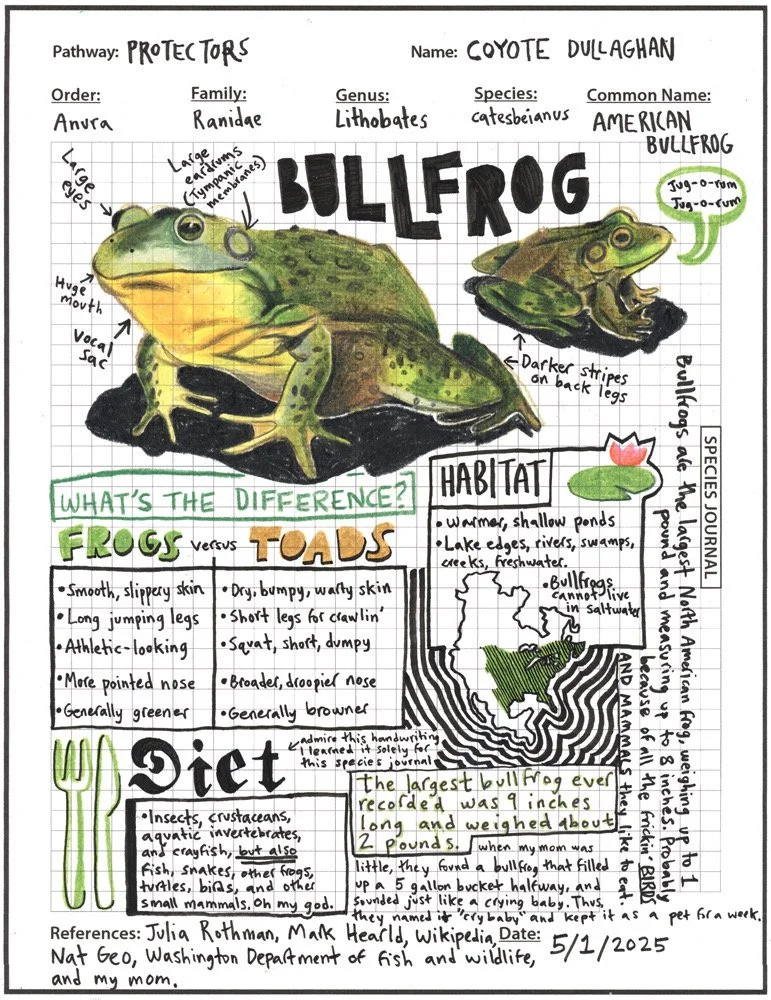 Pathway: PROTECTORS
Name: COYOTE DULLAGHAN
Order:
Anura
Family:
Ranidae
Genus:
Lithobates
Species:
catesbeianus
Common Name:
AMERICAN
BULLFROG
BULLFROG
Large
eyes
Large
eardrums
(Tympanic
membranes)
Huge
mouth
Vocal
sac
Jug-o-rum
Jug-o-rum
Darker stripes
on back legs
SPECIES JOURNAL
Bullfrogs are the largest North American frog, weighing up to 1
pound and measuring up to 8 inches. Probably
because of all the frickin' BIRDS
AND MAMMALS they like to eat.
WHAT'S THE DIFFERENCE?
FROGS versus TOADS
•Smooth, slippery skin
•Long jumping legs
•Athletic-looking
•More pointed nose
•Generally greener
•Dry, bumpy, warty skin
•Short legs for crawlin'
•Squat, short, dumpy
•Broader, droopier nose
•Generally browner
HABITAT
•Warmer, shallow ponds
•Lake edges, rivers, swamps,
creeks, freshwater.
•Bullfrogs
cannot live
in saltwater
Diet
admire this handwriting
I learned it solely for
this species journal
•Insects, crustaceans,
aquatic invertebrates,
and crayfish, but also
fish, snakes, other frogs,
turtles, birds, and other
small mammals. Oh my god.
The largest bullfrog ever
recorded was 9 inches
long and weighed about
2 pounds.
when my mom was
little, they found a bullfrog that filled
up a 5 gallon bucket halfway, and
sounded just like a crying baby. Thus,
they named it "crybaby" and kept it as a pet for a week.
References: Julia Rothman, Mark Hearld, Wikipedia,
Nat Geo, Washington Department of fish and wildlife,
and my mom.
Date: 5/1/2025